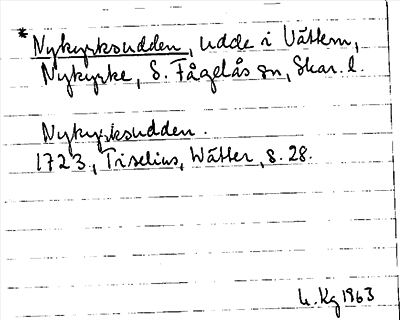 *Nykyrksudden, udde i Vättern,
Nykyrke, S. Fågelås sn, Skar. l.
Nykyrksudden.
1723, Tiselius, Wätter, s. 28.
Kg 1963